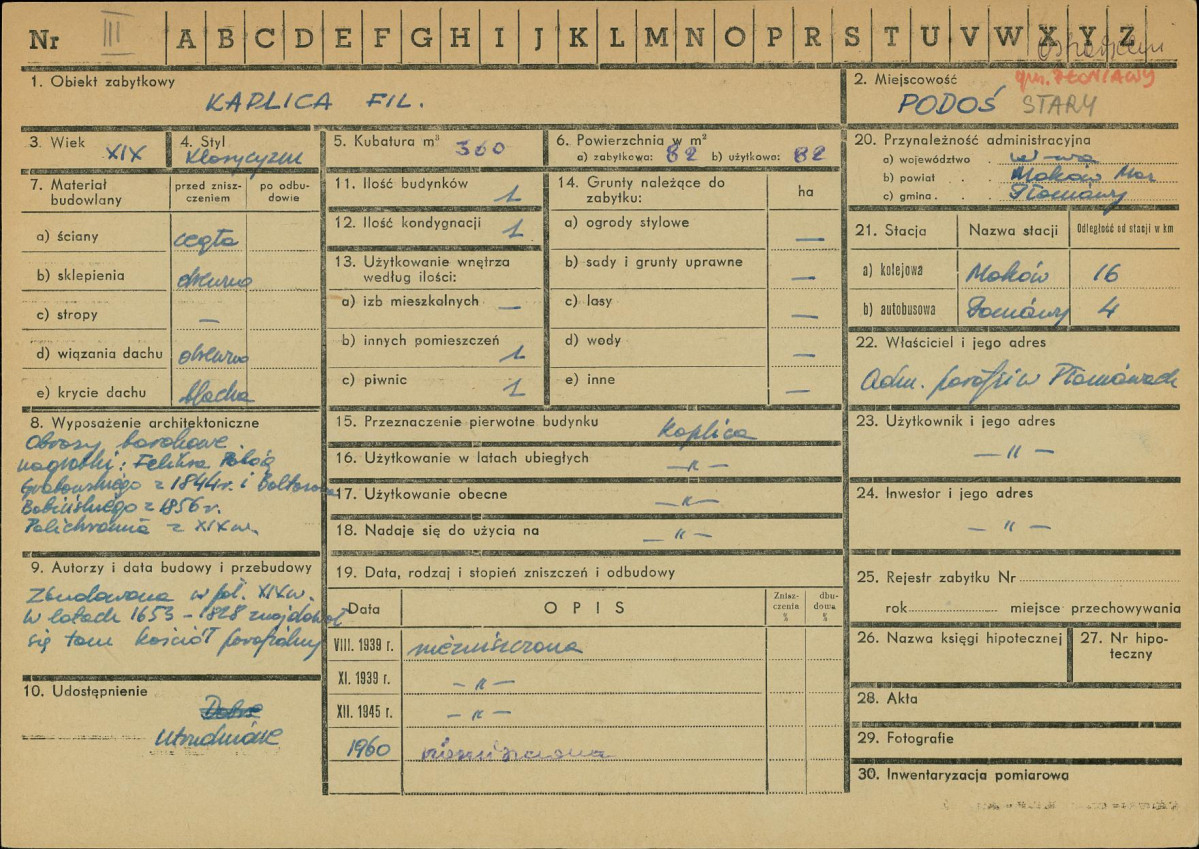 Nr III A B C D E F G H I J K L M N O P R S T U V W X Y Z
1. Obiekt zabytkowy
KAPLICA FIL.
2. Miejscowość
gm. PŁONIAWY
PODOŚ STARY
3. Wiek XIX
4. Styl Klasycyzm
5. Kubatura m³ 360
6. Powierzchnia w m²
a) zabytkowa: 82 b) użytkowa: 82
7. Materiał budowlany
przed zniszczeniem
po odbudowie
a) ściany cegła
b) sklepienia drewno
c) stropy —
d) wiązania dachu drewno
e) krycie dachu blacha
8. Wyposażenie architektoniczne
Obrazy barokowe.
nagrobki: Feliksa
Grabowskiego z 1844 r. i
Bobińskiego z 1856 r.
Polichromia z XIX w.
9. Autorzy i data budowy i przebudowy
Zbudowana w poł. XIX w.
W latach 1653-1828 znajdował
się tam kościół parafialny
10. Udostępnienie
Dobre
utrudnione
11. Ilość budynków 1
12. Ilość kondygnacji 1
13. Użytkowanie wnętrza
według ilości:
a) izb mieszkalnych —
b) innych pomieszczeń 1
c) piwnic 1
14. Grunty należące do
zabytku:
ha
a) ogrody stylowe —
b) sady i grunty uprawne —
c) lasy —
d) wody —
e) inne —
15. Przeznaczenie pierwotne budynku kaplica
16. Użytkowanie w latach ubiegłych — „ —
17. Użytkowanie obecne — „ —
18. Nadaje się do użycia na — „ —
19. Data, rodzaj i stopień zniszczeń i odbudowy
Data
OPIS
Zniszczenia %
dbudowa %
VIII. 1939 r. niezniszczona
XI. 1939 r. — „ —
XII. 1945 r. — „ —
1960 niezniszczona
20. Przynależność administracyjna
a) województwo W-wa
b) powiat Maków Maz
c) gmina Płoniawy
21. Stacja
Nazwa stacji
Odległość od stacji w km
a) kolejowa Maków 16
b) autobusowa Płoniawy 4
22. Właściciel i jego adres
Adm. parafii w Płoniawach
23. Użytkownik i jego adres
— „ —
24. Inwestor i jego adres
— „ —
25. Rejestr zabytku Nr
rok miejsce przechowywania
26. Nazwa księgi hipotecznej
27. Nr hipoteczny
28. Akta
29. Fotografie
30. Inwentaryzacja pomiarowa